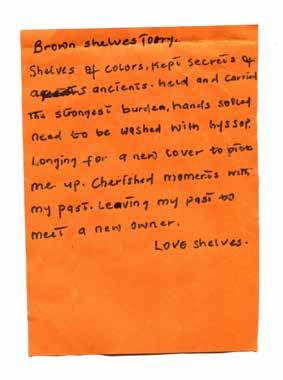 Brown shelves Toery.
Shelves of colors, Kept secrets of
ancients. held and carried
the strongest burden, hands soiled
need to be washed with hyssop.
Longing for a new lover to pick
me up. Cherished moments with
my past. Leaving my past to
meet a new owner.
LOVE shelves.